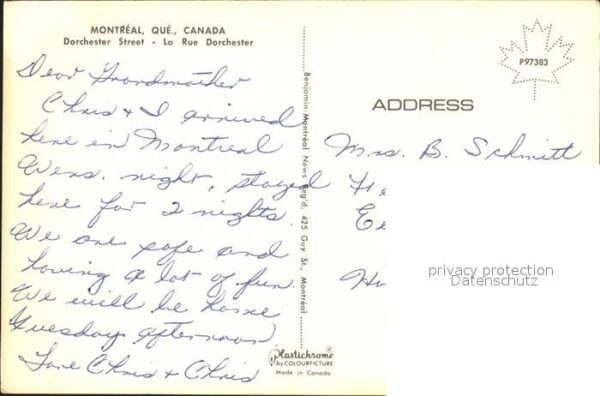 MONTRÉAL, QUÉ., CANADA
Dorchester Street - La Rue Dorchester
Dear Grandmother
Chris & I arrived
here in Montreal
Wens. night, stayed
here for 2 nights.
We are safe and
having a lot of fun.
We will be home
Tuesday afternoon
Love Chris & Chris
Benjamin-Montréal News Reg'd, 425 Guy St., Montréal
Plastichrome
BY COLOURPICTURE
Made in Canada
P97383
ADDRESS
Mrs. B. Schmitt
privacy protection
Datenschutz